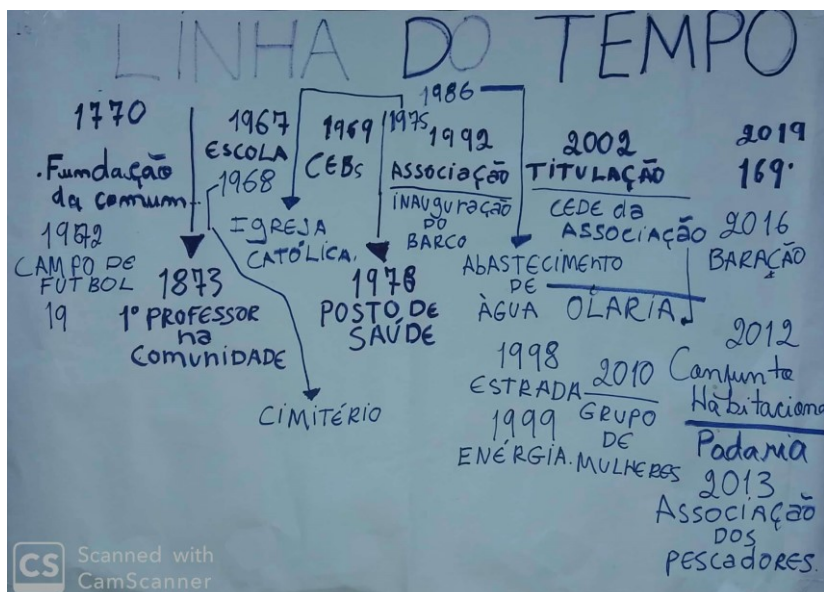 LINHA DO TEMPO
1770
.Fundação
da comum
1972
CAMPO DE
FUTBOL
19
1873
1º PROFESSOR
na
ComuNIDADE
1967
ESCOLA
1968
CIMITÉRIO
IGREJA
CATÓLICA.
1969
CEBs
1975
1986
1978
POSTO DE
SAÚDE
1992
ASSOCIAÇÃO
iNAUGURAÇÃO
DO
BARCO
2002
TITULAÇÃO
CEDE da
ASSOCIAÇÃO
ABASTECIMENTO
DE
ÀGUA
OLARIA
1998
ESTRADA
1999
ENÉRGIA.
2010
GRUPO
DE
MULHERES
2019
169.
2016
BARAÇÃO
2012
Conjunto
Habitaciona
Padaria
2013
ASSOCIAÇÃO
DOS
PESCADORES.
CS Scanned with
CamScanner